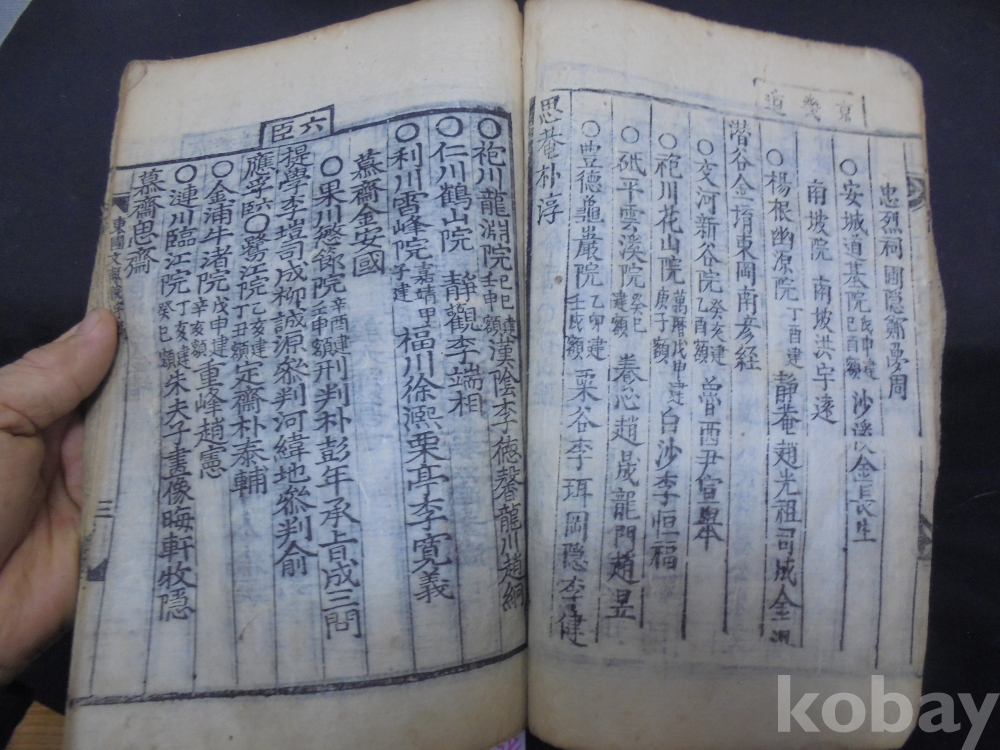 京畿道
忠烈祠 圃隱鄭夢周
○安城道基院 沙溪金長生
南坡院 南坡洪宇遠
○楊根幽源院 丁酉建 靜菴趙光祖司成金湜
潛谷金堉東岡南彦經
○交河新谷院 癸亥建乙酉額 魯西尹宣擧
○袍川花山院 萬曆戊申建庚子額 白沙李恒福
○砥平雲溪院 建癸巳額 養心趙晟龍門趙昱
○豊德龜巖院 乙卯建壬戌額 栗谷李珥岡隱李健
思菴朴淳
○袍川龍淵院 己巳建壬申額 漢陰李德馨龍川趙絅
○仁川鶴山院 靜觀李端相
○利川雪峰院 嘉靖甲子建 福川徐熙栗亭李寛義
慕齋金安國
六臣
○果川愍節院 辛酉建壬申額 刑判朴彭年 承旨成三問
提學李塏司成柳誠源參判河緯地參判俞
應孚 六臣 ○鷺江院 乙亥建丁丑額 定齋朴泰輔
○金浦牛渚院 戊申建辛亥額 重峰趙憲
○漣川臨江院 丁亥建癸巳額 朱夫子畫像晦軒牧隱
慕齋思齋
東國文獻院
三
kobay